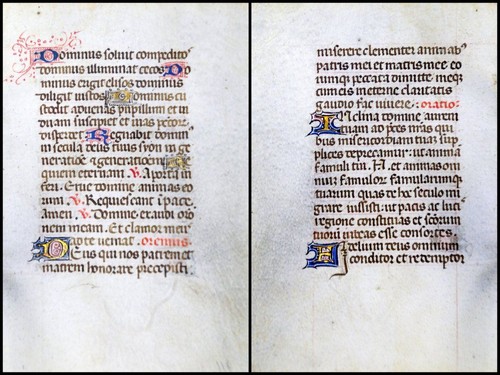 Dominus soluit compedito
dominus illuminat cecos Do
minus erigit elisos dominus
diligit iustos Dominus cu
stodit aduenas pupillum et ui
duam suscipiet et uias peccor
disperdet Regnabit domin
in secula deus tuus syon in ge
neratioē et generationem Re
quiem eternam. V. A porta in
feri. Erue domine animas eo
rum. V. Requiescant i pace.
amen. V. Domine exaudi oro
nem meam. Et clamor meu
ad te ueniat. oremus
Deus qui nos patrem et
matrem honorare precepisti
miserere clementer animab
patris mei et matris mee eo
rumq peccata dimitte meq
cum eis in eterne claritatis
gaudio fac uiuere. oratio.
Inclina domine aurem
tuam ad preces nrās qui
bus misericordiam tuam sup
plices deprecamur. ut animā
famuli tui. N. et animas om
nium famulor famularumq
tuarum quas de hoc seculo mi
grare iussisti in pacis ac luci
regione constituas et scōrum
tuorū iubeas esse consortes.
Fidelium deus omnium
conditor et redemptor